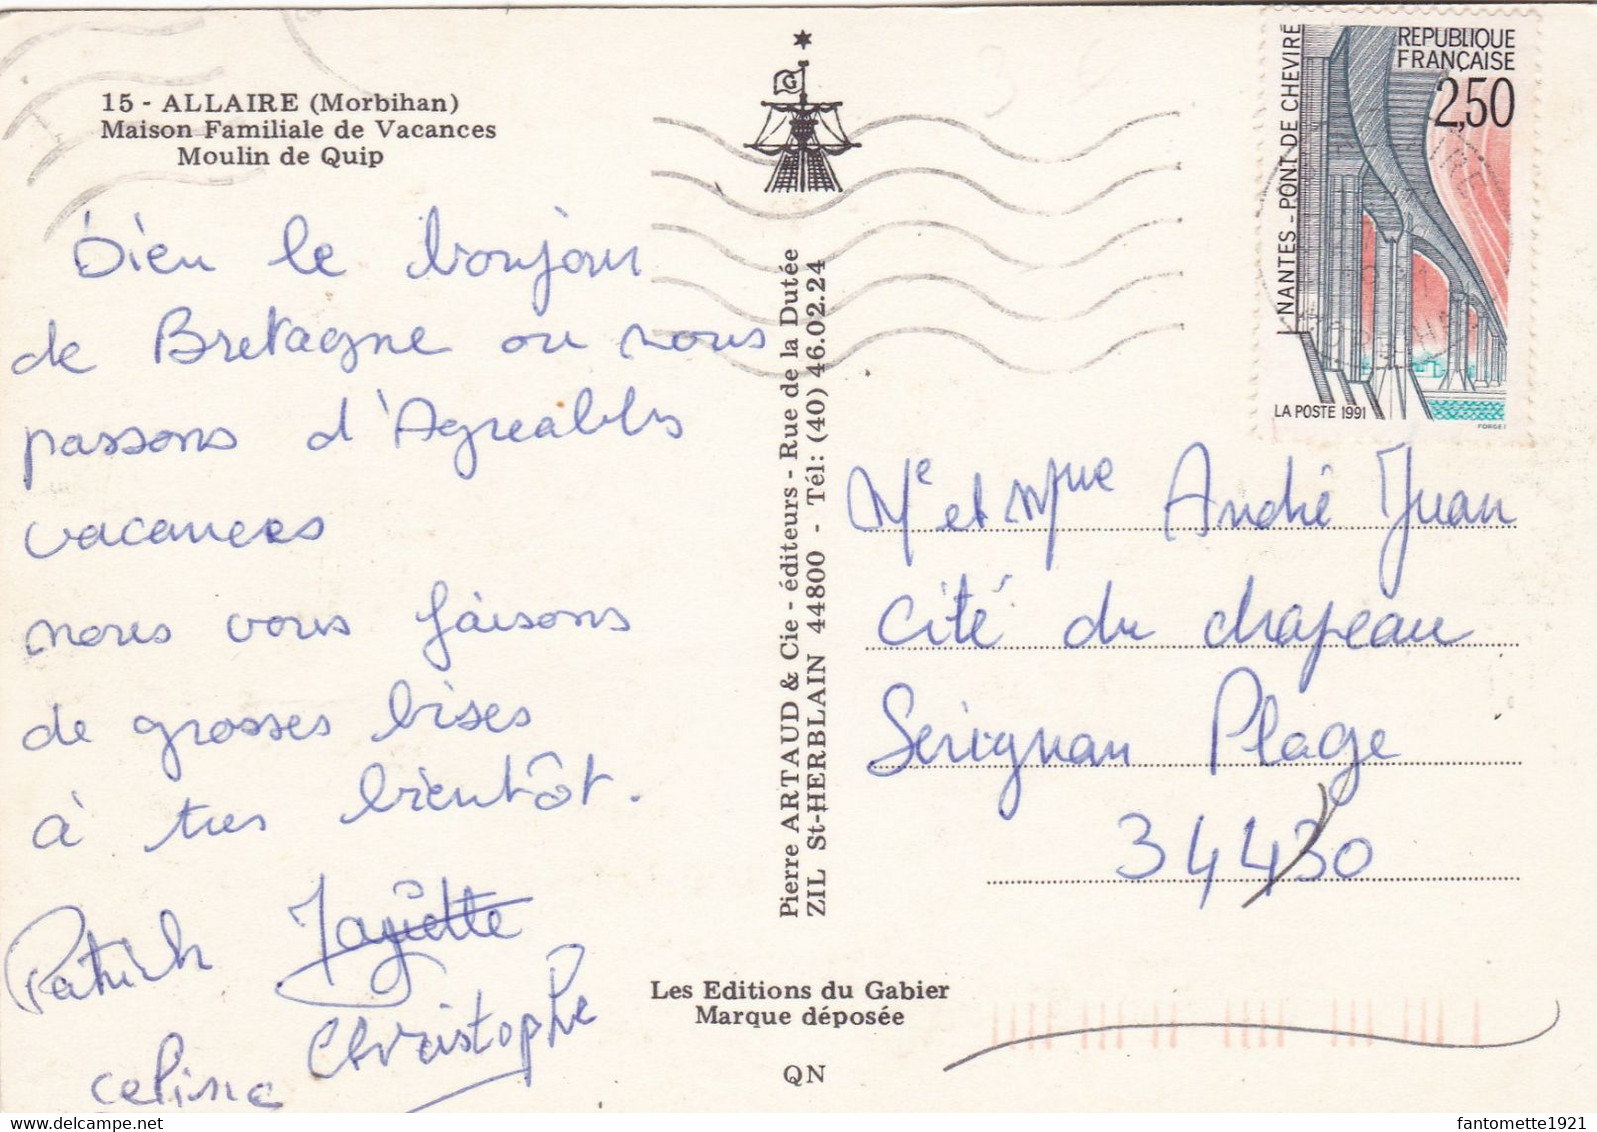 15 - ALLAIRE (Morbihan)
Maison Familiale de Vacances
Moulin de Quip
bien le bonjour
de Bretagne ou nous
passons d'Agreables
vacances
nous vous faisons
de grosses bises
à tres bientôt.
Patrick
Christophe
Celine
G
Pierre ARTAUD & Cie - éditeurs - Rue de la Dutée
ZIL St-HERBLAIN 44800 - Tél: (40) 46.02.24
Les Editions du Gabier
Marque déposée
QN
REPUBLIQUE
FRANÇAISE
2,50
NANTES - PONT DE CHEVIRE
LA POSTE 1991
FORGET
Mr et Mme André Juan
Cité du chapeau
Serignan Plage
34430
fantomette1921